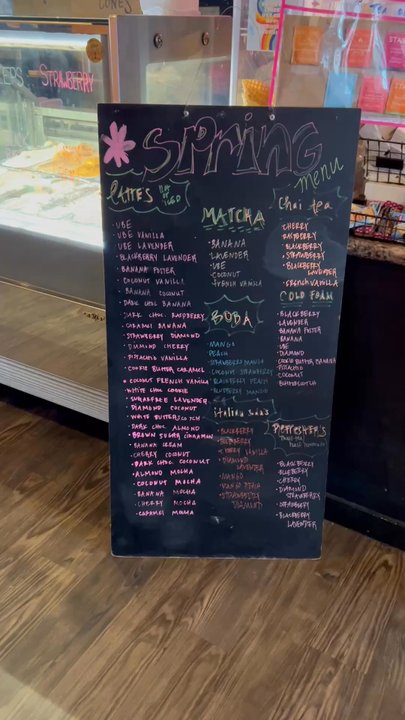 CONES
STRAWBERRY
Spring
menu
LATTES HOT OR ICED
· UBE
· UBE VANILLA
· UBE LAVENDER
· BLACKBERRY LAVENDER
· BANANA FOSTER
· COCONUT VANILLA
· BANANA COCONUT
· DARK CHOC BANANA
· DARK CHOC. RASPBERRY
· CARAMEL BANANA
· STRAWBERRY DIAMOND
· DIAMOND CHERRY
· PISTACHIO VANILLA
· COOKIE BUTTER CARAMEL
· COCONUT FRENCH VANILLA
· WHITE CHOC COOKIE
· SUGARFREE LAVENDER
· DIAMOND COCONUT
· WHITE BUTTERSCOTCH
· DARK CHOC ALMOND
· BROWN SUGAR CINNAMON
· BANANA CREAM
· CHERRY COCONUT
· DARK CHOC COCONUT
· ALMOND MOCHA
· COCONUT MOCHA
· BANANA MOCHA
· CHERRY MOCHA
· CARAMEL MOCHA
MATCHA
· BANANA
· LAVENDER
· UBE
· COCONUT
· FRENCH VANILLA
BOBA
· MANGO
· PEACH
· STRAWBERRY MANGO
· COCONUT STRAWBERRY
· BLUEBERRY PEACH
· BLUEBERRY MANGO
italian sodas
· BLACKBERRY
· BLUEBERRY
· CHERRY VANILLA
· DIAMOND LAVENDER
· MANGO
· MANGO PEACH
· STRAWBERRY DIAMOND
Chai tea
· CHERRY
· RASPBERRY
· BLACKBERRY
· STRAWBERRY
· BLACKBERRY
LAVENDER
· FRENCH VANILLA
COLD FOAM
· BLACKBERRY
· LAVENDER
· BANANA FOSTER
· BANANA
· UBE
· DIAMOND
· COOKIE BUTTER BANANA
· PISTACHIO
· COCONUT
· BUTTERSCOTCH
REFRESHERS
· BLACKBERRY
· BLUEBERRY
· CHERRY
· DIAMOND
STRAWBERRY
· STRAWBERRY
· BLACKBERRY
LAVENDER